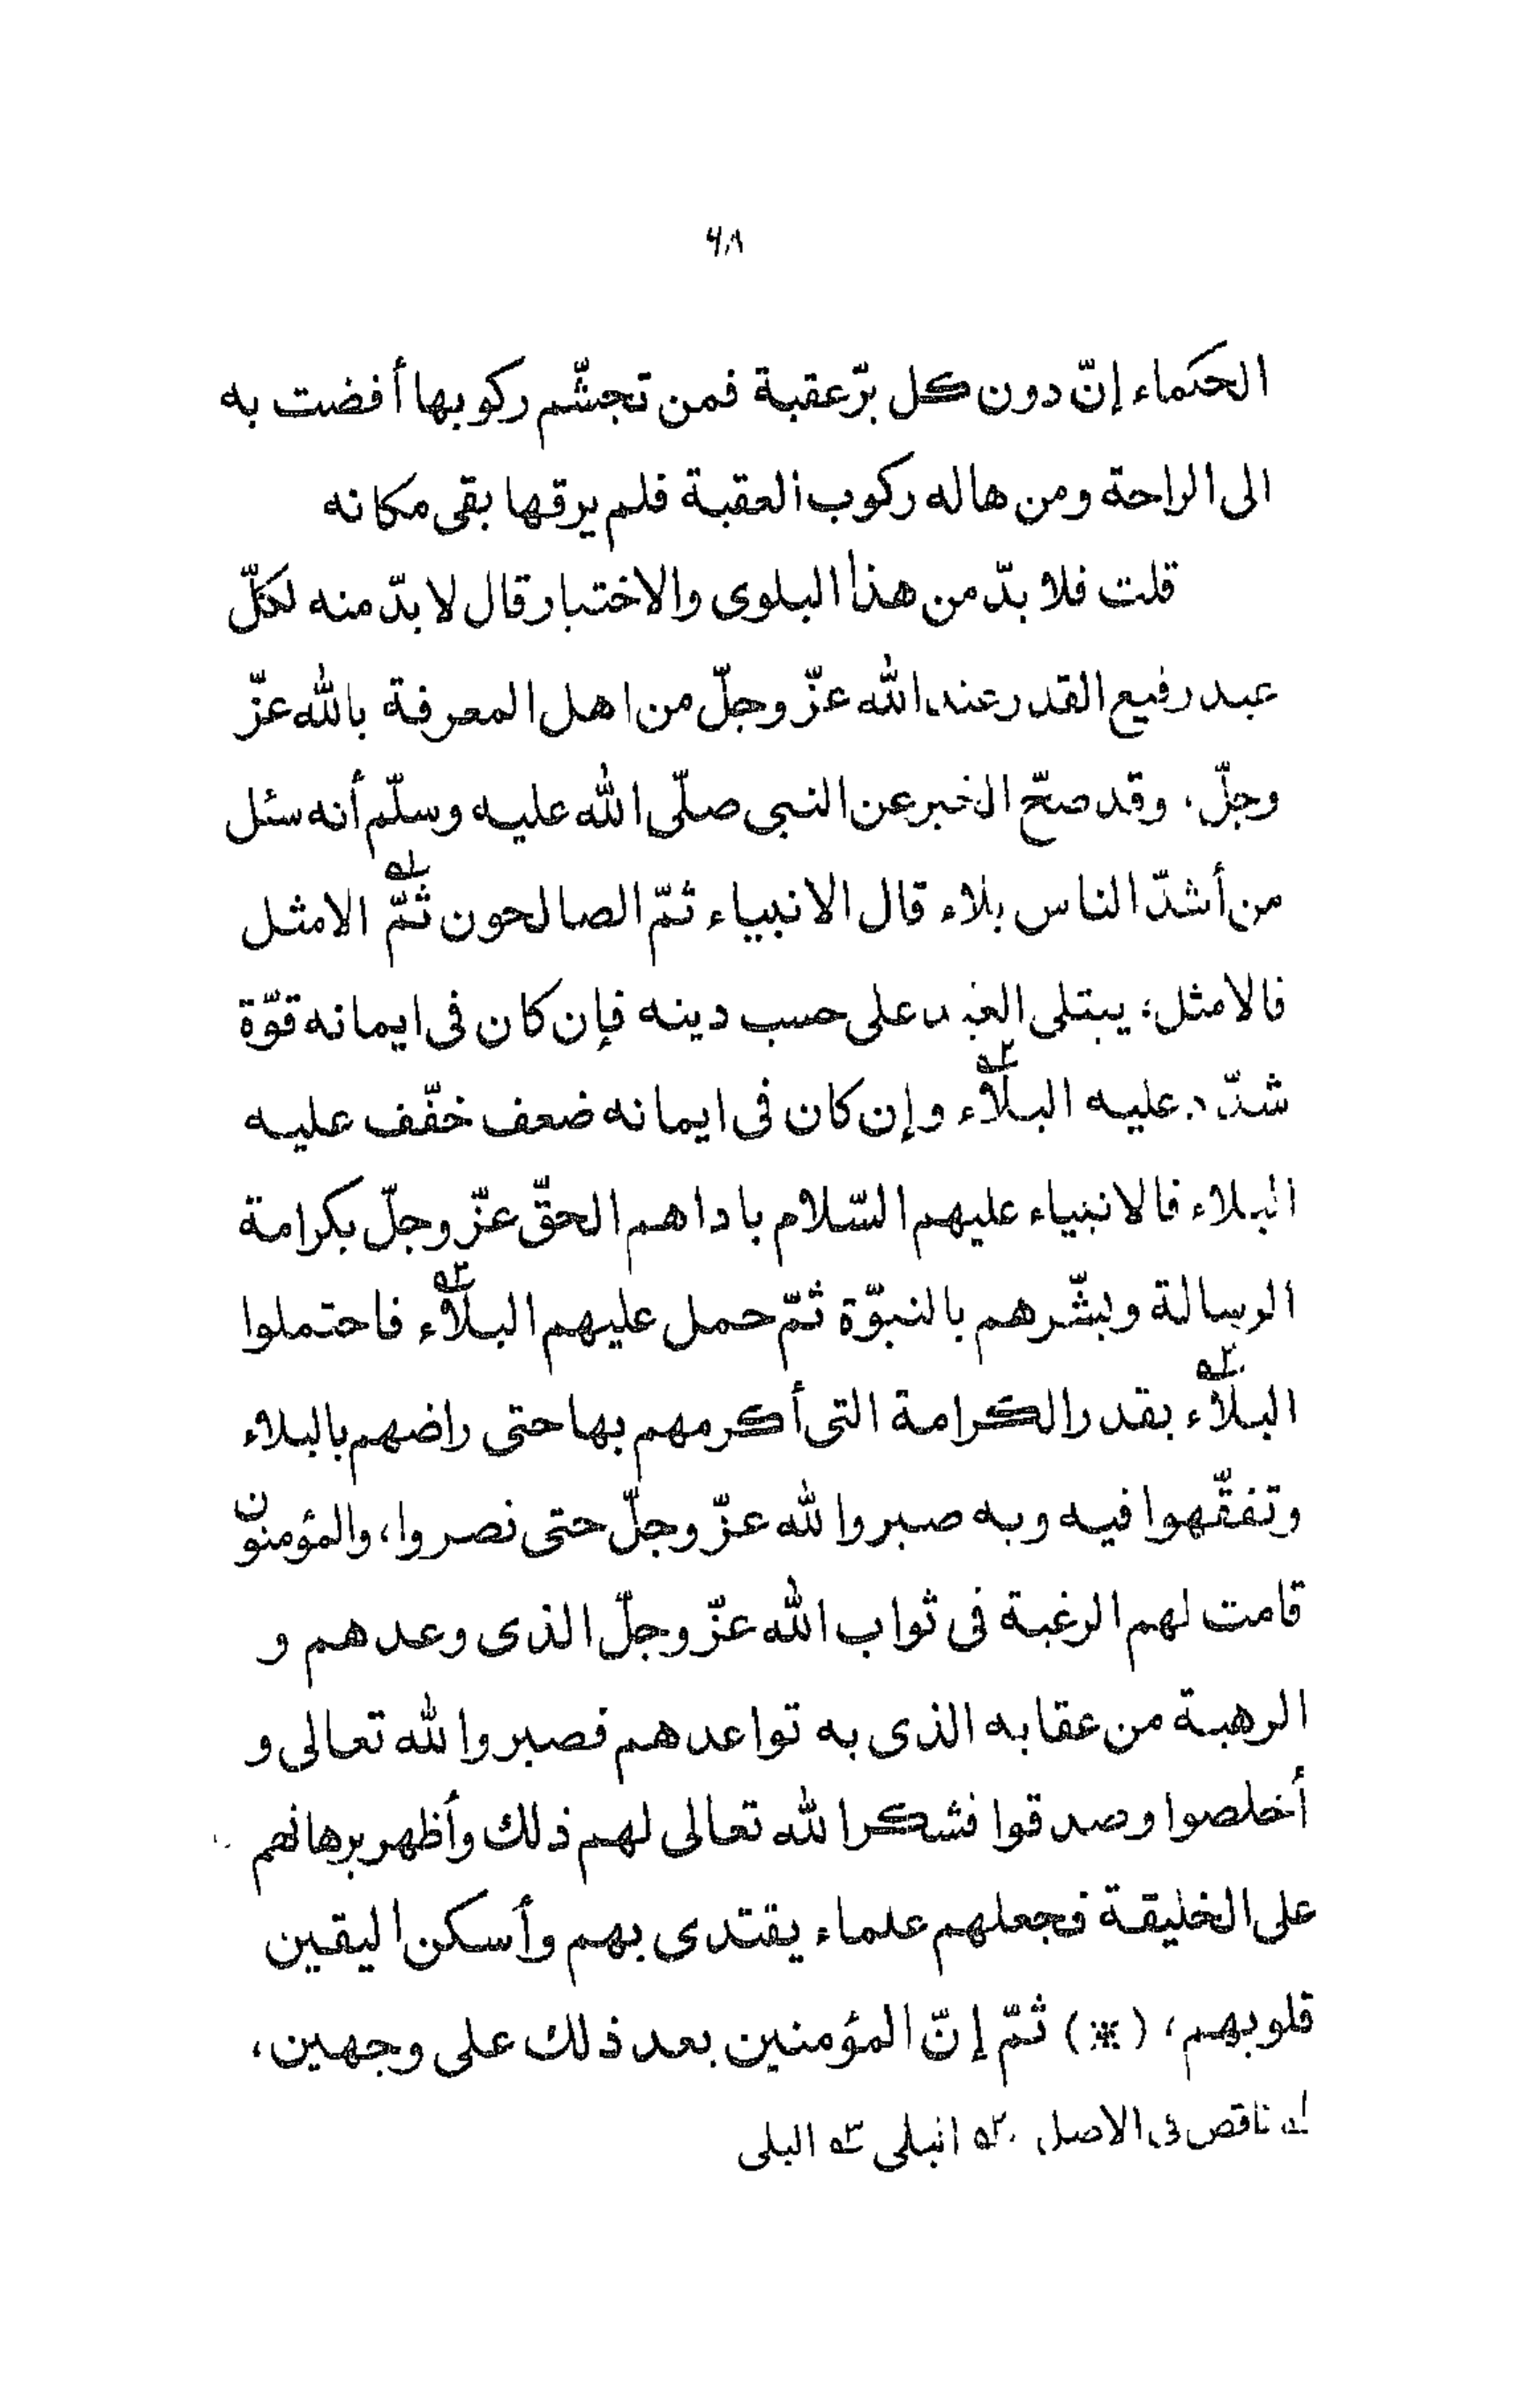 ۶۸
الحكماء إنّ دون كل برّ عقبة فمن تجشّم ركوبها أفضت به
الى الراحة ومن هاله ركوب العقبة فلم يرقها بقى مكانه
قلت فلا بدّ من هذا البلوى والاختبار قال لا بدّ منه لكلّ
عبد رفيع القدر عند الله عزّ وجلّ من اهل المعرفة بالله عزّ
وجلّ، وقد صحّ الخبر عن النبى صلّى الله عليه وسلّم أنه سئل
من أشدّ الناس بلاء قال الانبياء ثمّ الصالحون ثمّ۱ الامثل
فالامثل، يبتلى العبد على حسب دينه فإن كان فى ايمانه قوّة
شدّد عليه البلاء۲ وإن كان فى ايمانه ضعف خفّف عليه
البلاء فالانبياء عليهم السّلام باداهم الحقّ عزّ وجلّ بكرامة
الرسالة وبشّرهم بالنبوّة ثمّ حمل عليهم البلاء۳ فاحتملوا
البلاء۳ بقدر الكرامة التى أكرمهم بها حتى راضهم بالبلاء
وتفقّهوا فيه وبه صبروا لله عزّ وجلّ حتى نصروا، والمؤمنون
قامت لهم الرغبة فى ثواب الله عزّ وجلّ الذى وعدهم و
الرهبة من عقابه الذى به تواعدهم فصبروا لله تعالى و
أخلصوا وصدقوا فشكر الله تعالى لهم ذلك وأظهر برهانهم
على الخليقة فجعلهم علماء يقتدى بهم وأسكن اليقين
قلوبهم، (※) ثمّ إنّ المؤمنين بعد ذلك على وجهين،
۱ ناقص فى الاصل ۲ ابتلى ۳ البلى